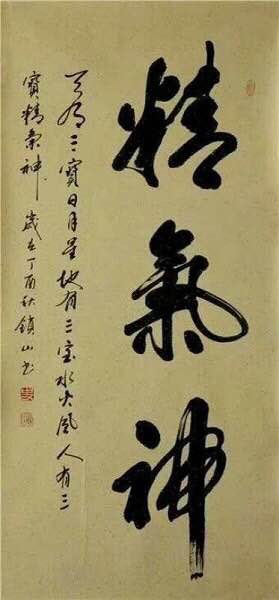 精氣神
天有三寶日月星地有三寶水火風人有三
寶精氣神歲在丁酉秋鎖山書